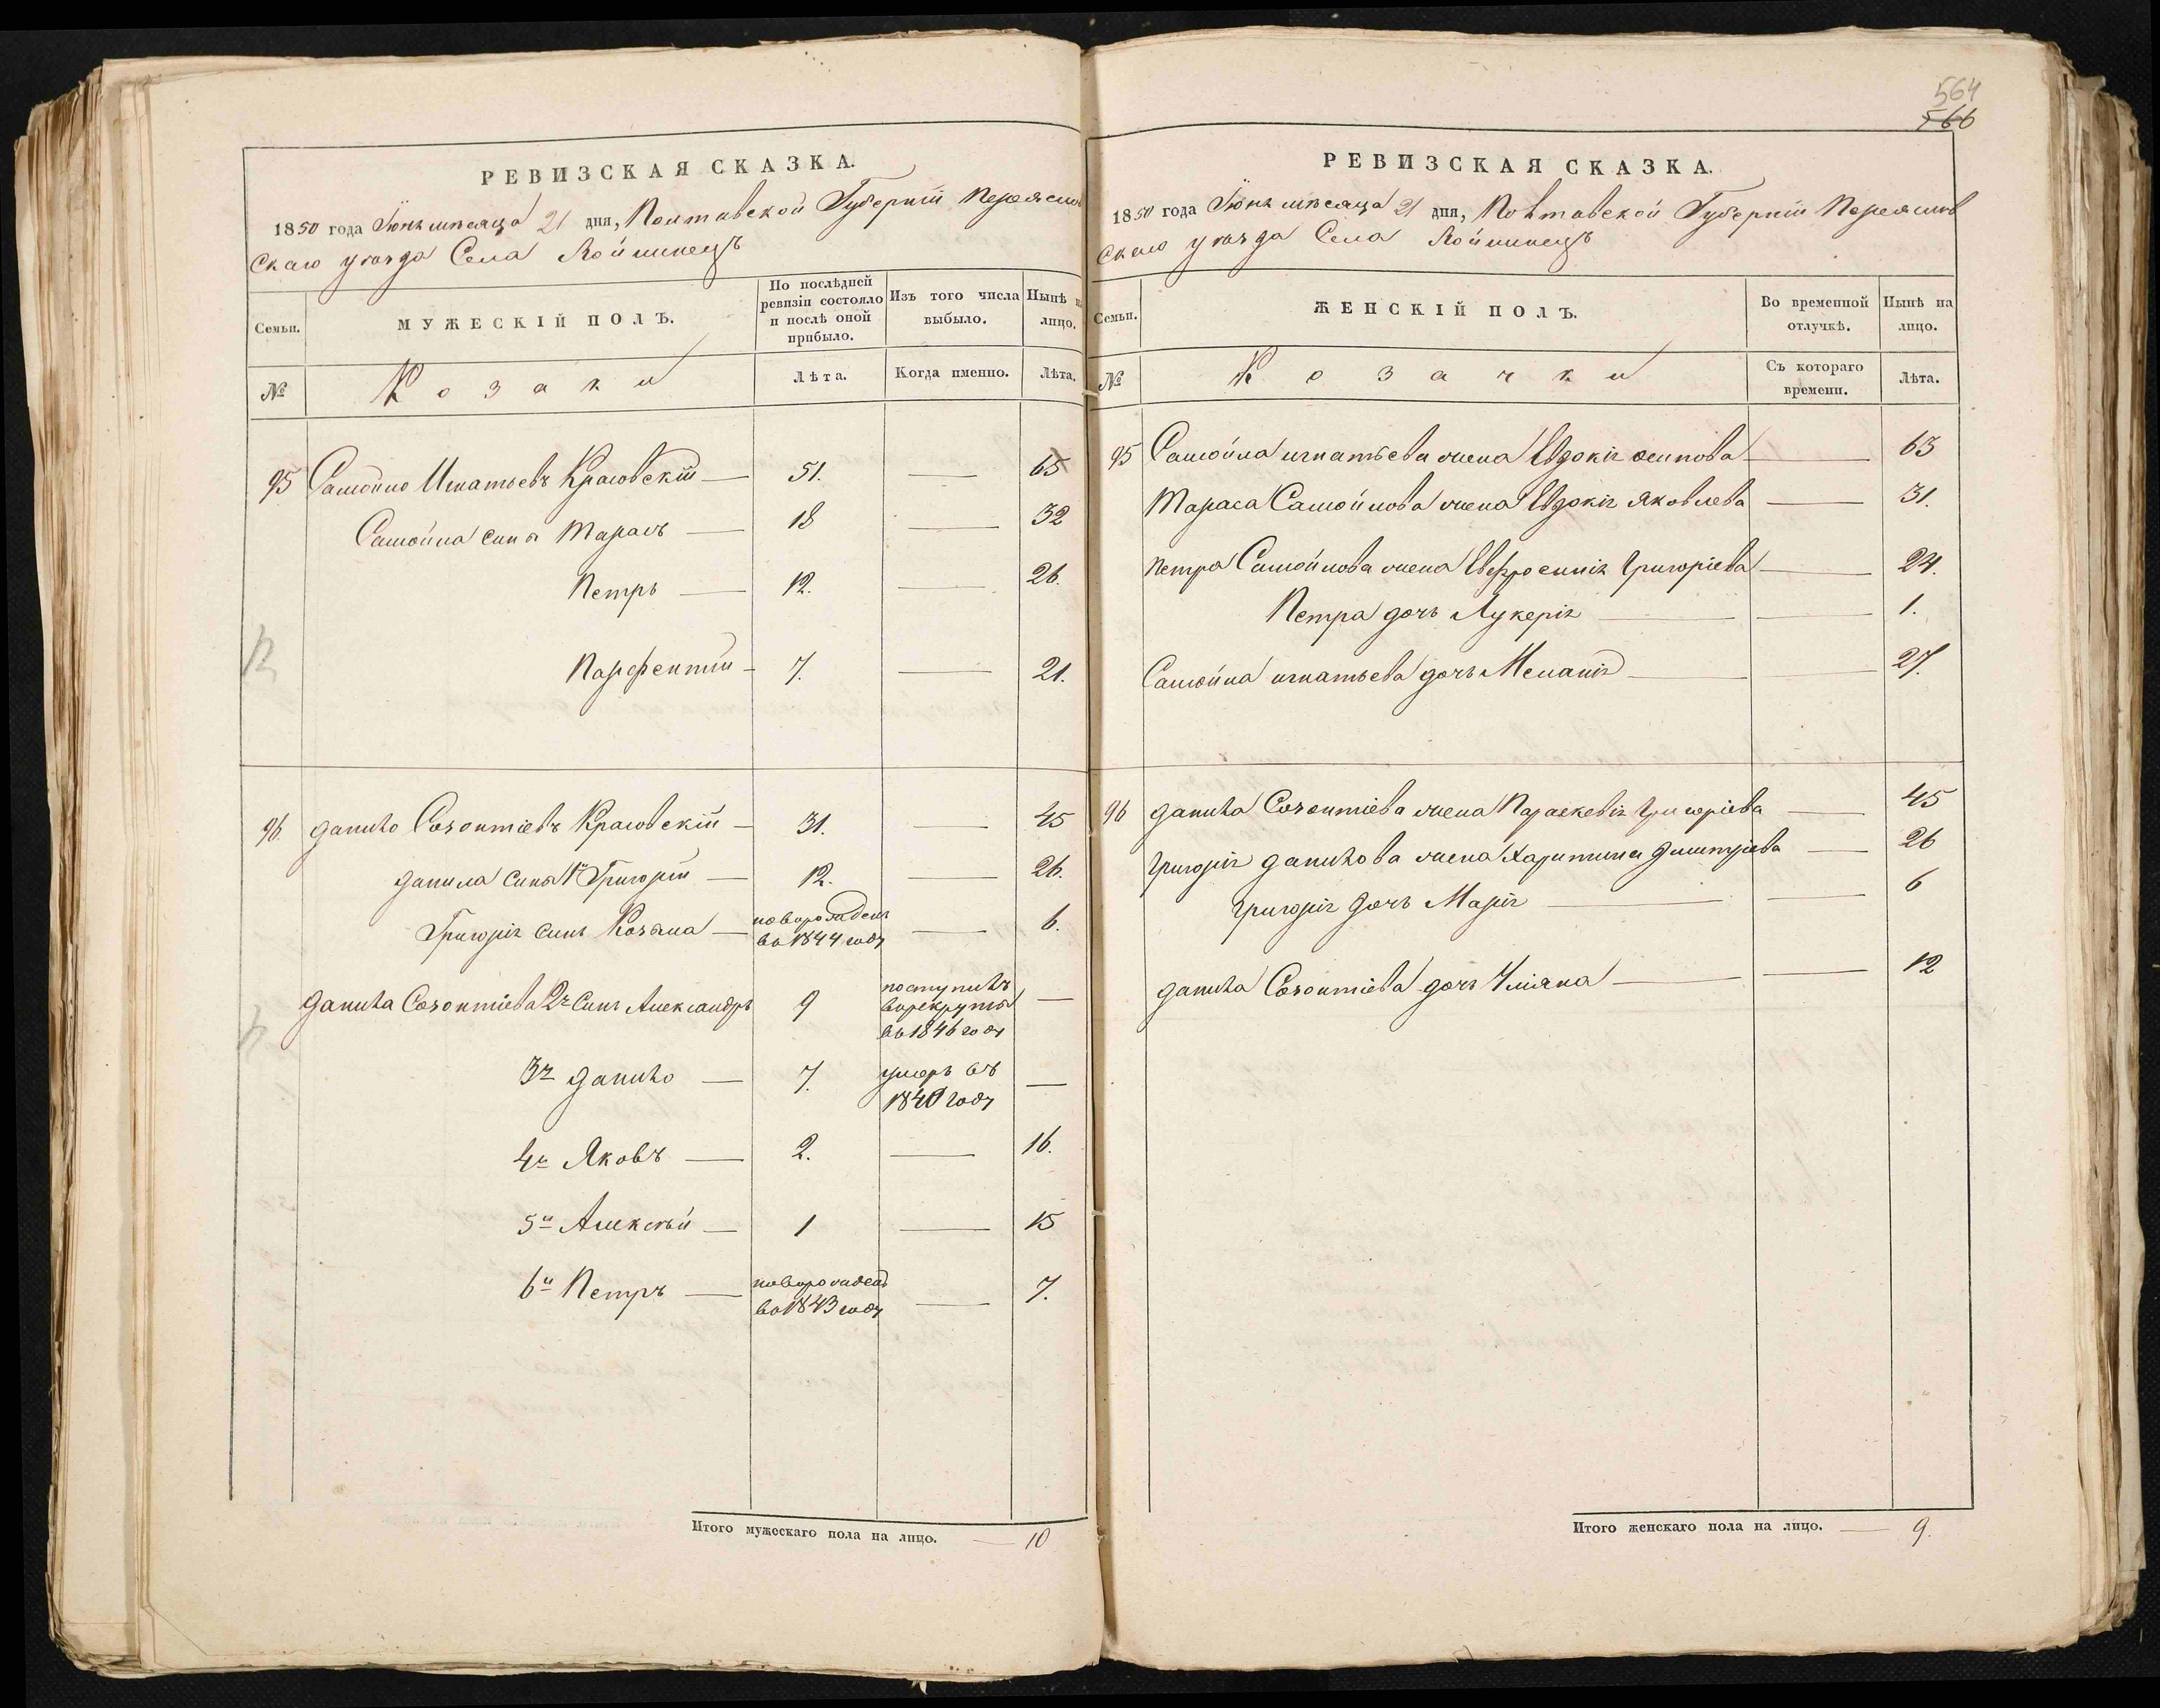 РЕВИЗСКАЯ СКАЗКА.
1850 года Іюнь мѣсяца 21 дня, Полтавской Губерніи Переяслов
скаго уѣзда Села Войтовецъ
Семьи.
МУЖЕСКІЙ ПОЛЪ.
По послѣдней ревизіи состояло и послѣ оной прибыло.
Изъ того числа выбыло.
Нынѣ на лицо.
№
Козаки
Лѣта.
Когда именно.
Лѣта.
95 Самойло Игнатьевъ Красовскій — 51. — 65
Самойла сины Тарасъ — 18 — 32
Петръ — 12. — 26.
Парфентій — 7. — 21.
96. Данило Созонтіевъ Красовскій — 31. — 45
Данила сины 1й Григорій — 12. — 26.
Григорія синъ Козьма — новорожденъ
во 1844 году — 6.
Данила Созонтіева 2й Синъ Александръ 9 поступилъ
в рекруты
во 1846 году —
3й Данило — 7. умеръ въ
1840 году —
4й Яковъ — 2. — 16.
5й Алексѣй — 1 — 15
6й Петръ — новорожденъ
во 1843 году — 7.
Итого мужескаго пола на лицо. — 10
564
566
РЕВИЗСКАЯ СКАЗКА.
1850 года Іюнь мѣсяца 21 дня, Полтавской Губерніи Переяслов
скаго уѣзда Села Войтовецъ
Семьи.
ЖЕНСКІЙ ПОЛЪ.
Во временной отлучкѣ.
Нынѣ на лицо.
№
Козачки
Съ котораго времени.
Лѣта.
95 Самойла игнатьева жена Евдокія осипова — 63
Тараса Самойлова жена Евдокія Яковлева — 31.
Петра Самойлова жена Евфросинія Григоріева — 24.
Петра дочь Лукерія — — 1.
Самойла игнатьева дочь Меланія — — 27.
96 Данила Созонтіева жена Параскевія Григоріева — 45
Григорія Данилова жена Харитина Дмитріева — 26
Григорія Дочь Марія — — 6
Данила Созонтіева дочь Уліяна — — 12
Итого женскаго пола на лицо. — 9.